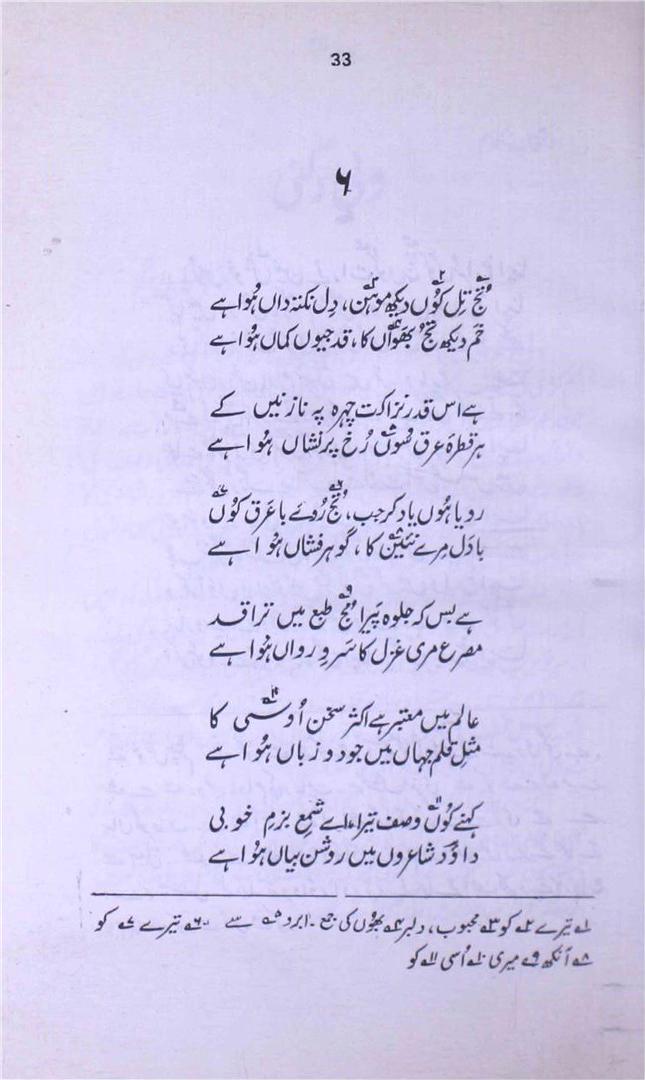 33
۶
تُجؔ تِل کوںؔ دیکھ موہنؔ، دِل نکتہ داں ہُوا ہے
خم دیکھ تجُ بھواںؔ کا، قد جیوں کماں ہُوا ہے
ہے اس قدر نزاکت چہرہ پہ نازنیں کے
ہر قطرۂ عرق سُوںؔ رُخ پر نشاں ہُوا ہے
رویا ہُوں یاد کر جب، تُجؔ رُوئے با عَرق کوںؔ
بادَل مِرے نَیَنؔ کا، گوہر فشاں ہُوا ہے
ہے بس کہ جلوہ پَیرا مُجؔ طبع میں ترا قد
مصرع مری غزل کا سَروِ رواں ہُوا ہے
عالم میں معتبر ہے اکثر سخن اُوسیؔ کا
مثلِ قلم جہاں میں جو دو زباں ہُوا ہے
کہنے کوںؔ وصف تیرا، اے شمعِ بزمِ خوبی
داؤد شاعروں میں روشن بیاں ہُوا ہے
۱؎ تیرے ۲؎ کو ۳؎ محبوب، دلبر ۴؎ بھَوں کی جمع۔ ابرو ۵؎ سے ۶؎ تیرے ۷؎ کو
۸؎ آنکھ ۹؎ میری ۱۰؎ اُسی ۱۱؎ کو